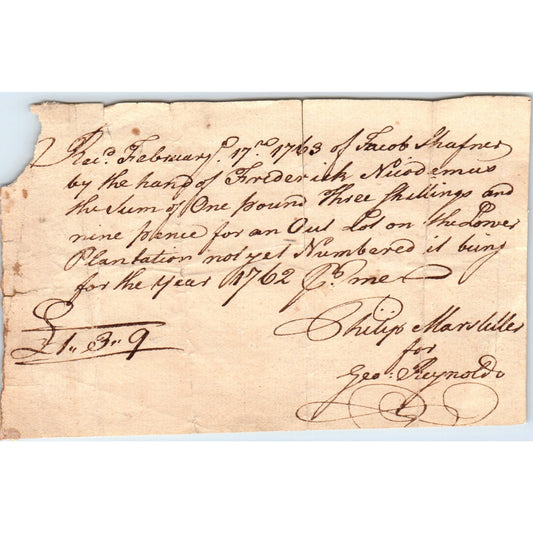 Rec.d February 17th 1763 of Jacob Shafner
by the hand of Frederick Nicodemus
the Sum of One pound Three Shillings and
nine pence for an Out Lot on the Lower
Plantation not yet Numbared it bing
for the Year 1762 Pr me
£1,, 3,, 9
Philip
for
Geo: Reynolds